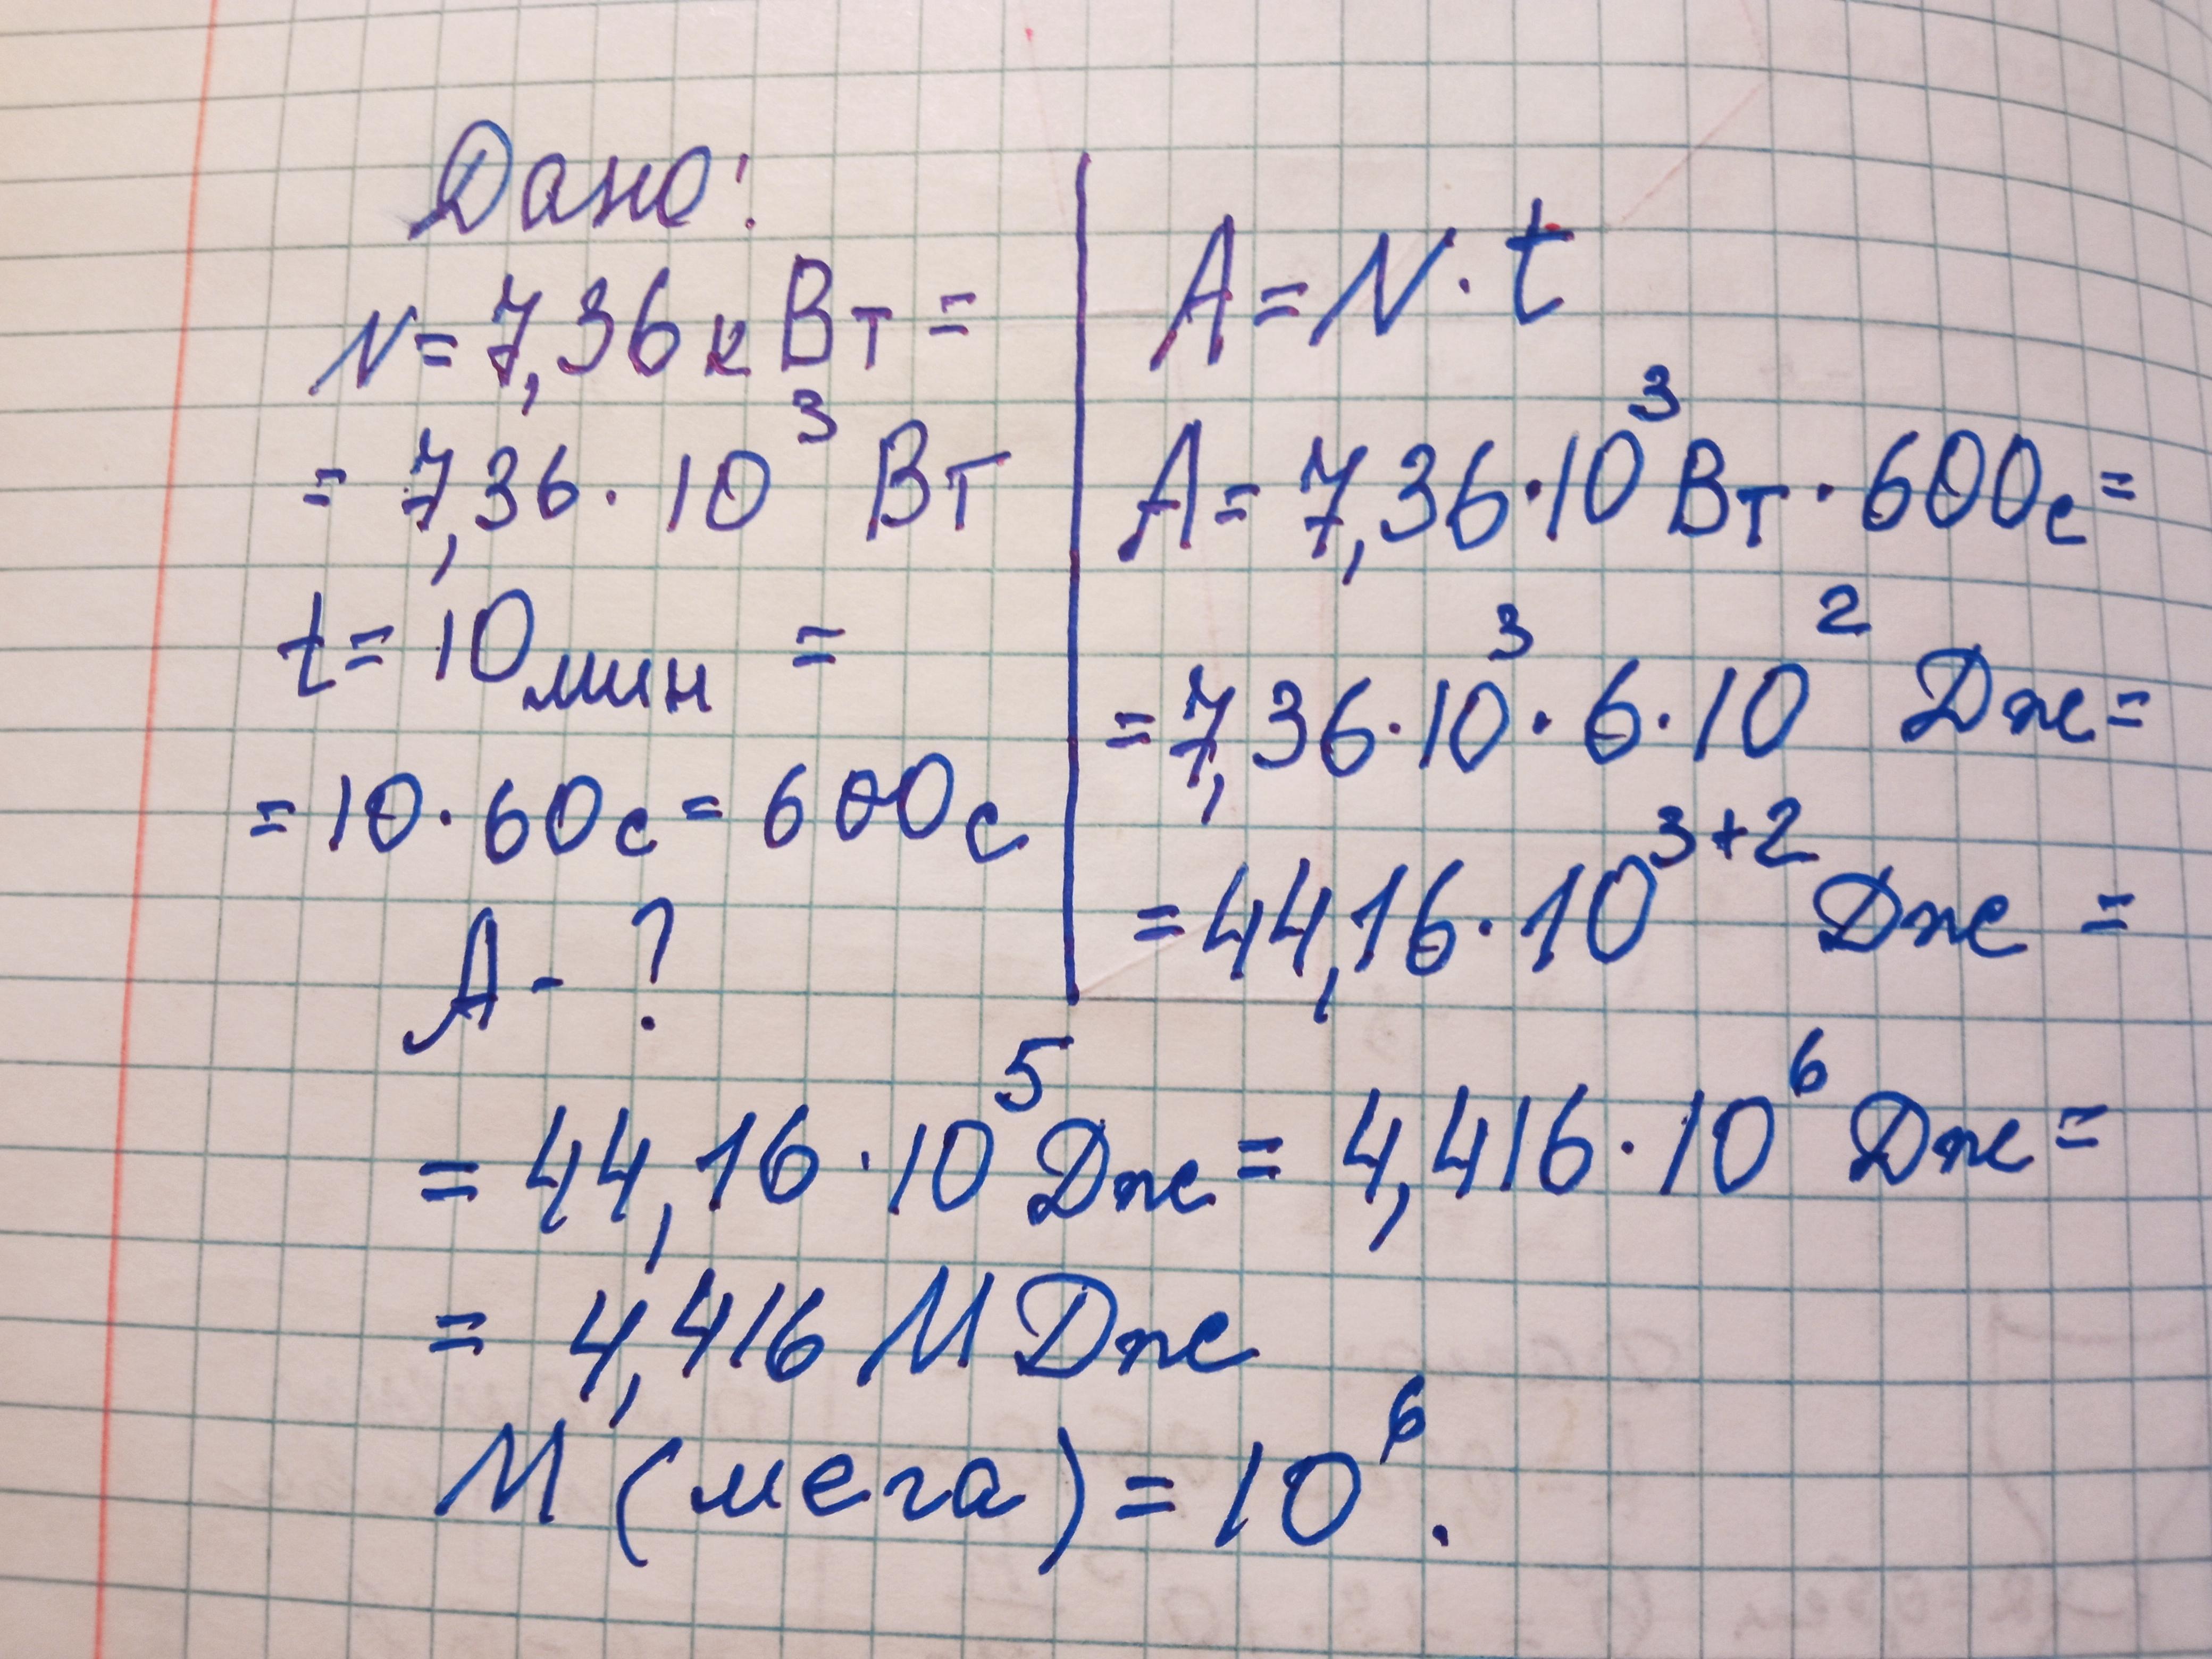 Дано:
N = 7,36 кВт =
= 7,36 · 10³ Вт
t = 10 мин =
= 10 · 60 с = 600 с
A - ?
A = N · t
A = 7,36 · 10³ Вт · 600 с =
= 7,36 · 10³ · 6 · 10² Дж =
= 44,16 · 10³⁺² Дж =
= 44,16 · 10⁵ Дж = 4,416 · 10⁶ Дж =
= 4,416 М Дж
М (мега) = 10⁶.